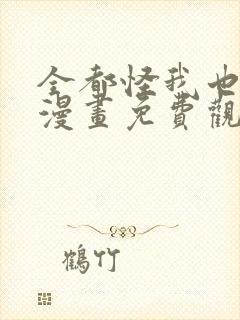 全都怪我也
漫畫免費觀
鶴竹